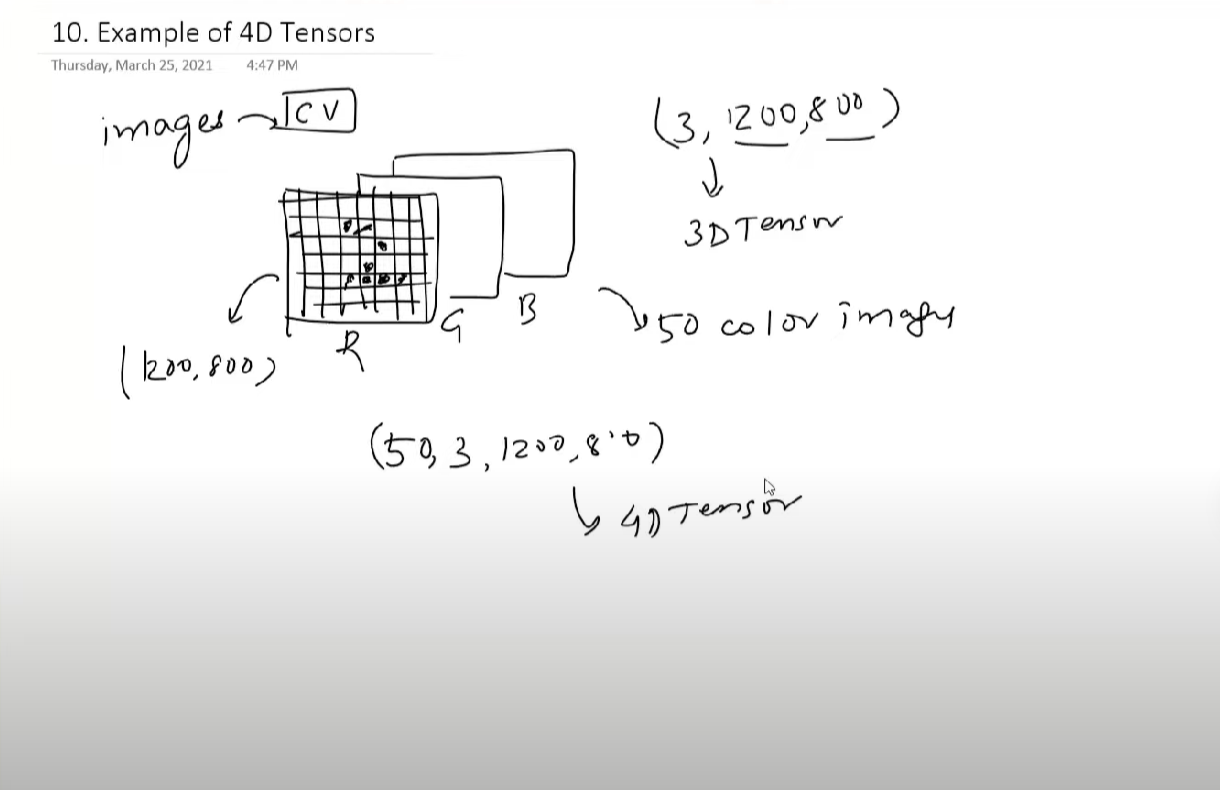 10. Example of 4D Tensors
Thursday, March 25, 2021 4:47 PM
images → CV
(3, 1200, 800)
3D Tensor
R
G
B
50 color images
(1200, 800)
(50, 3, 1200, 800)
4D Tensor